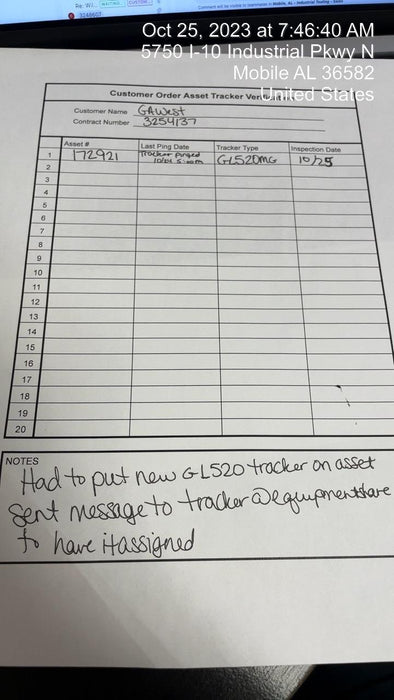 Re: Wi...
WAITING
Comment will be visible to teammates in Mobile, AL - Industrial Tooling - Sales
3248607
Oct 25, 2023 at 7:46:40 AM
5750 I-10 Industrial Pkwy N
Mobile AL 36582
United States
Customer Order Asset Tracker Ver
Customer Name GAWest
Contract Number 3254137
Asset # Last Ping Date Tracker Type Inspection Date
1 172921 Tracker pinged GL520MG 10/25
2
3
4
5
6
7
8
9
10
11
12
13
14
15
16
17
18
19
20
NOTES
Had to put new GL520 tracker on asset
Sent message to tracker@equipmentshare
to have it assigned